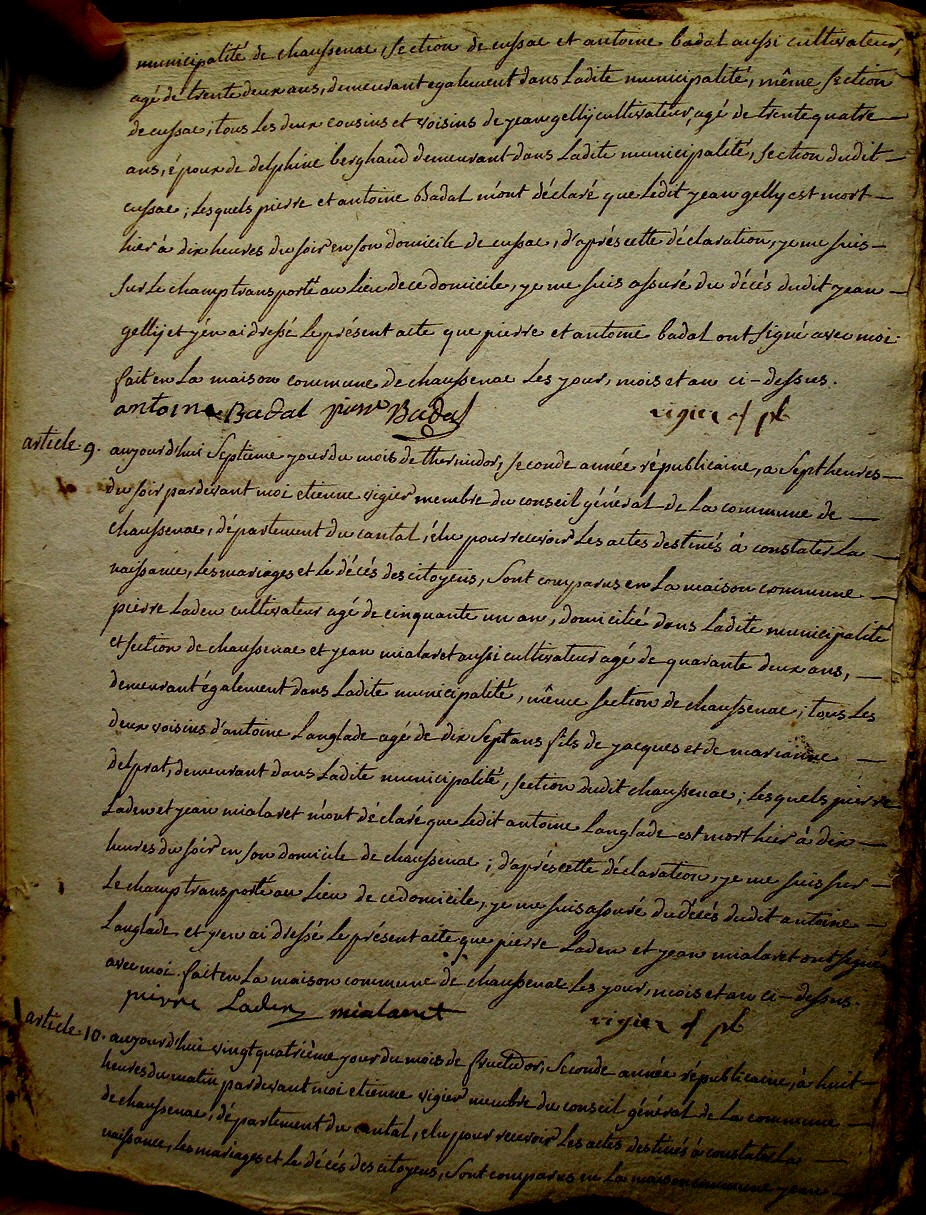 municipalité de chaussenac, section de cussac et antoine badal aussi cultivateur,
agé de trente deux ans, demeurant également dans ladite municipalité, même section
de cussac; tous les deux cousins et voisins de jean gelly cultivateur, agé de trente quatre
ans, époux de delphine berghaud demeurant dans ladite municipalité, section dudit
cussac; lesquels pierre et antoine Badal m'ont déclaré que ledit jean gelly est mort
hier à dix heures du soir en son domicile de cussac, d'après cette déclaration, je me suis
sur le champ transporté au lieu de ce domicile, je me suis assuré du décés dudit jean
gelly et j'en ai dressé le présent acte que pierre et antoine badal ont signé avec moi.
fait en la maison commune de chaussenac les jour, mois et an ci-dessus.
antoine Badal pierre Badal vigier of pb
article 9. aujourd'hui septieme jour du mois de thermidor, seconde année républicaine, a sept heures
du soir pardevant moi etienne vigier membre du conseil général de la commune de
chaussenac, département du cantal, élu pour recevoir les actes destinés à constater la
naissance, les mariages et le décés des citoyens, sont comparus en la maison commune
pierre Laden cultivateur agé de cinquante un an, domicilié dans ladite municipalité
et section de chaussenac et jean mialaret aussi cultivateur agé de quarante deux ans,
demeurant également dans ladite municipalité, même section de chaussenac; tous les
deux voisins d'antoine Langlade agé de dix sept ans fils de jacques et de marianne
delprat, demeurant dans ladite municipalité, section dudit chaussenac; lesquels pierre
Laden et jean mialaret m'ont déclaré que ledit antoine Langlade est mort hier à dix
heures du soir en son domicile de chaussenac; d'après cette déclaration, je me suis sur
le champ transporté au lieu de ce domicile, je me suis assuré du décés dudit antoine
Langlade et j'en ai dressé le présent acte que pierre Laden et jean mialaret ont signé
avec moi. fait en la maison commune de chaussenac les jour, mois et an ci-dessus.
pierre Laden mialaret vigier of pb
article 10. aujourd'hui vingt quatrième jour du mois de fructidor, seconde année républicaine, à huit
heures du matin pardevant moi etienne vigier membre du conseil général de la commune
de chaussenac, département du cantal, elu pour recevoir les actes destinés à constater la
naissance, les mariages et le décés des citoyens, sont comparus en la maison commune jean